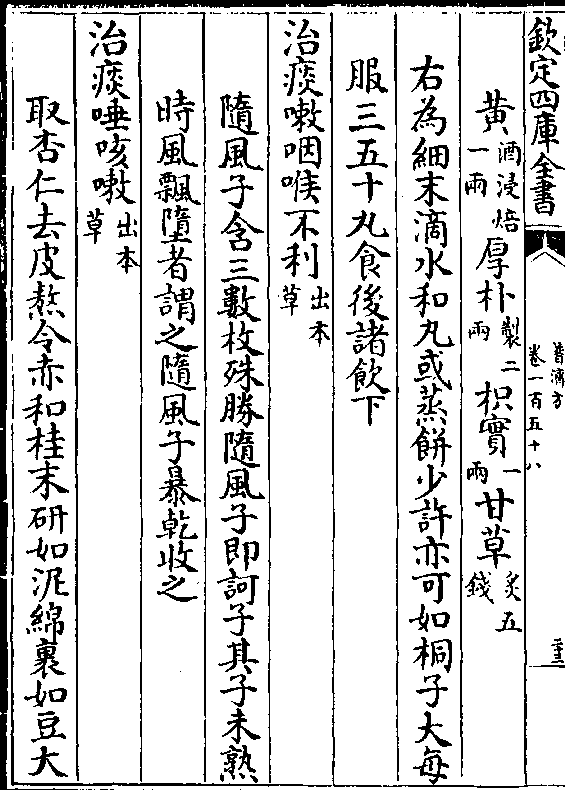 欽定四庫全書
普濟方
卷一百五十八
二十三
黄酒浸焙一兩厚朴製二兩枳實一兩甘草炙五錢
右為細末滴水和丸或蒸餅少許亦可如桐子大每
服三五十丸食後諸飲下
治痰嗽咽喉不利出本草
隨風子含三數枚殊勝隨風子即訶子其子未熟
時風飄墮者謂之隨風子暴乾收之
治痰唾咳嗽出本草
取杏仁去皮熬令赤和桂末研如泥綿裹如豆大